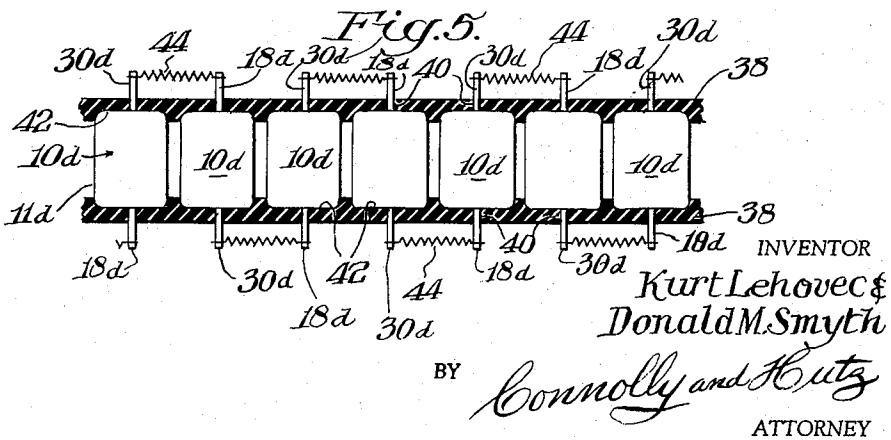 Fig.5.
30d 44 18d 30d 18d 40 30d 44 18d 30d
38
42
10d 10d 10d 10d 10d
11d
38
18d 30d 18d 42 30d 44 18d 40 30d 18d
INVENTOR
Kurt Lehovec &
Donald M. Smyth
BY Connolly and Hutz
ATTORNEY